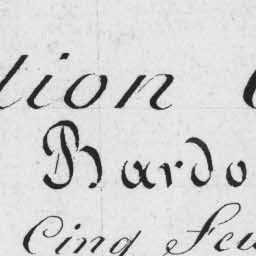 tion
Bardo
Cinq Feu